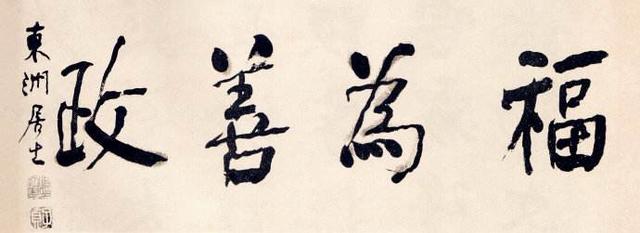 福為善政
東洲居士